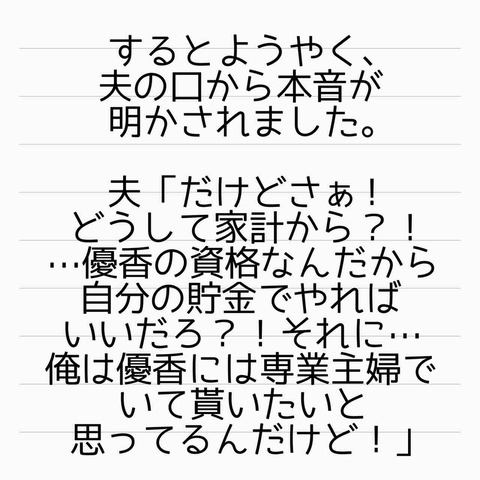 するとようやく、
夫の口から本音が
明かされました。
夫「だけどさぁ！
どうして家計から？！
…優香の資格なんだから
自分の貯金でやれば
いいだろ？！それに…
俺は優香には専業主婦で
いて貰いたいと
思ってるんだけど！」